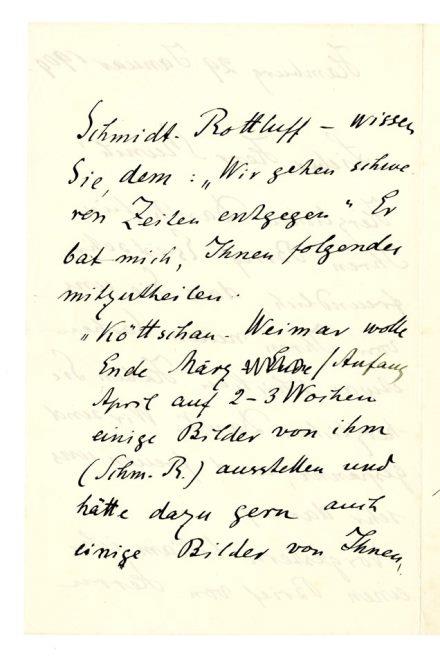 Schmidt-Rottluff – wissen
Sie, dem: „Wir gehen schwe
ren Zeiten entgegen" Er
bat mich, Ihnen folgendes
mitzutheilen.
„Köttschau-Weimar wolle
Ende März /Anfang
April auf 2–3 Wochen
einige Bilder von ihm
(Schm.-R.) ausstellen und
hätte dazu gern auch
einige Bilder von Ihnen,